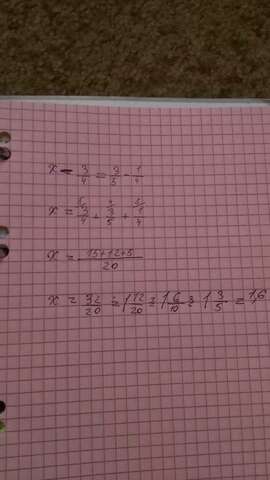 x - 3/4 = 3/5 - 1/4
x = 3/4 + 3/5 + 1/4
x = 15+12+5/20
x = 32/20 = 1 12/20 = 1 6/10 = 1 3/5 = 1,6